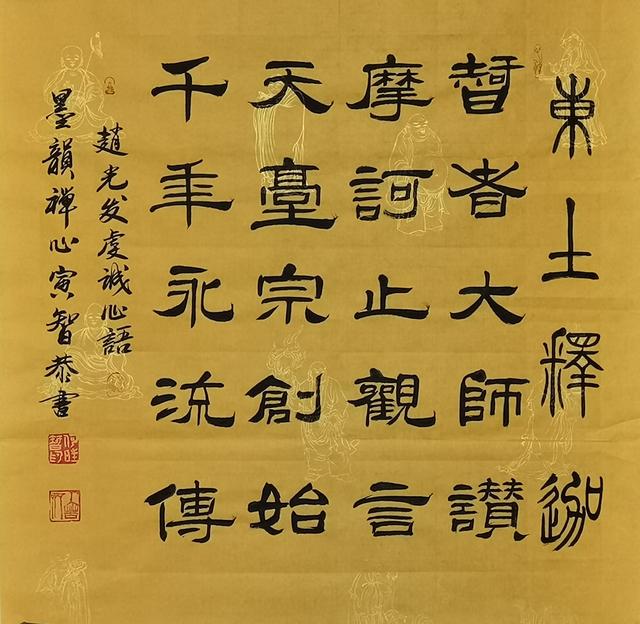 東土釋迦
智者大師讃
摩訶止觀言
天臺宗創始
千年永流傳
趙光发虔誠心語
墨韻禅心寅智恭書